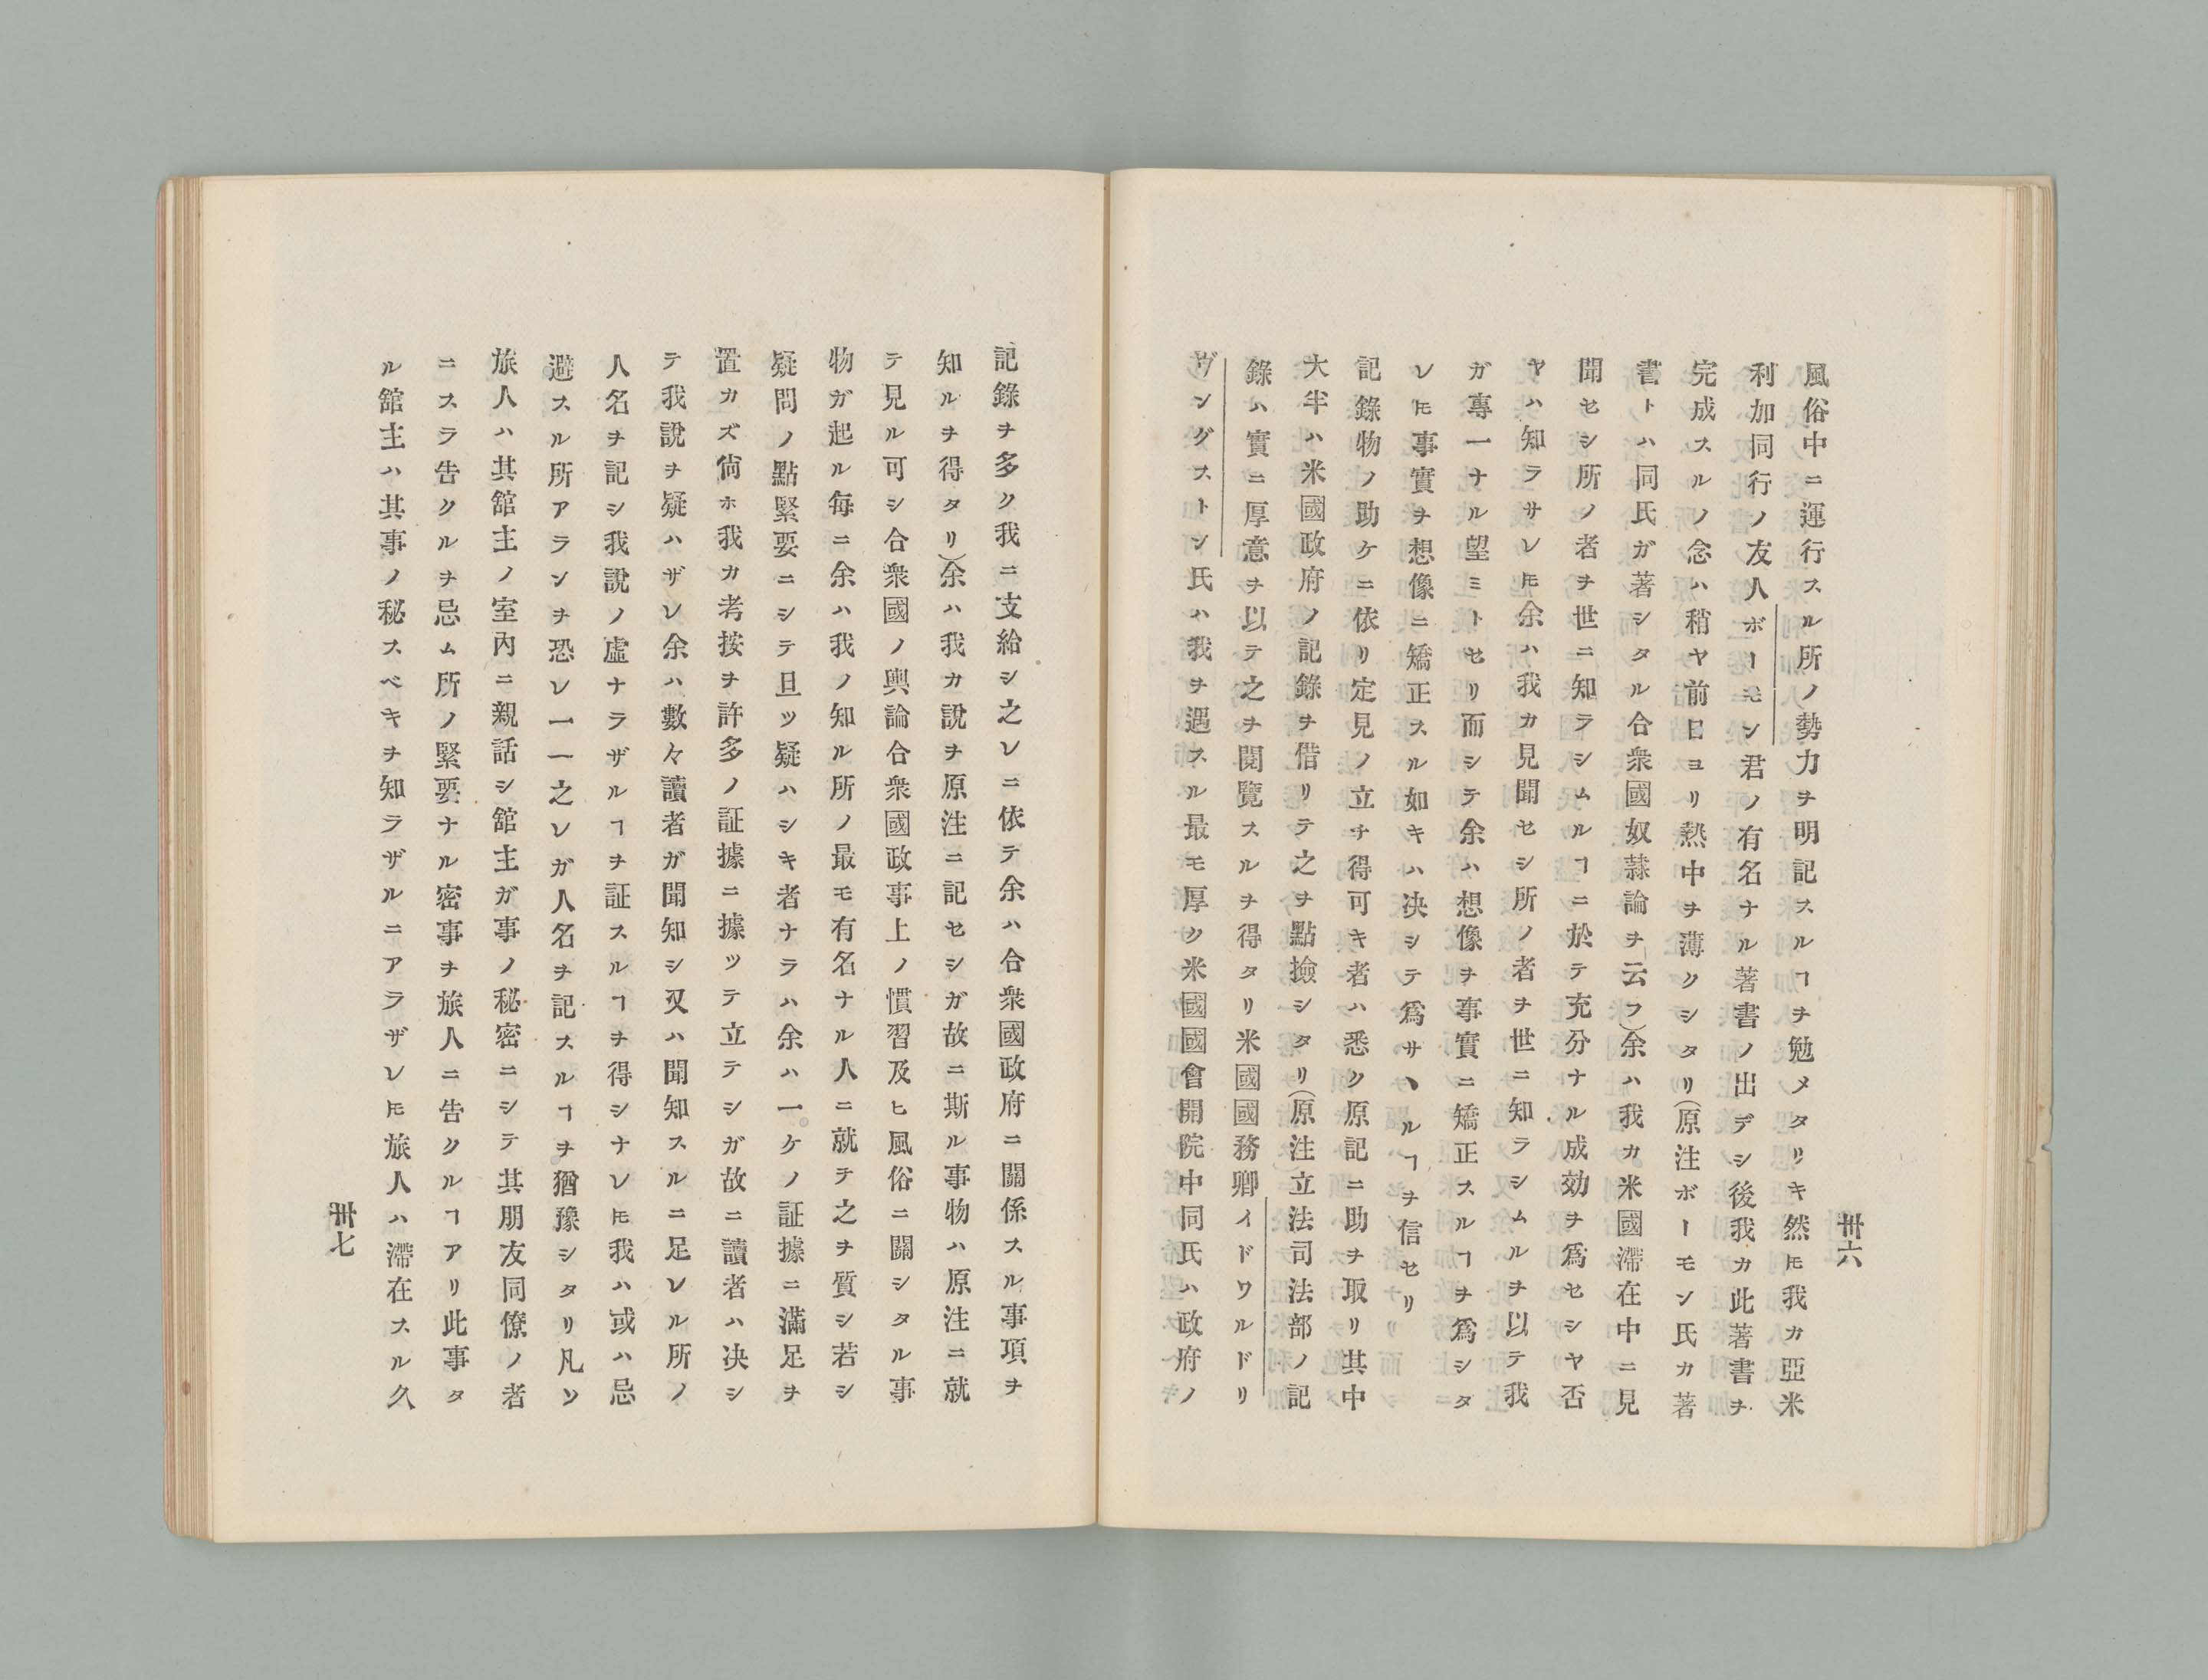 卅六
風俗中ニ運行スル所ノ勢力ヲ明記スルヿヲ勉メタリキ然𪜈我カ亞米
利加同行ノ友人ボーモン君ノ有名ナル著書ノ出デシ後我カ此著書ヲ
完成スルノ念ハ稍ヤ前日ヨリ熱中ヲ薄クシタリ(原注ボーモン氏カ著
書トハ同氏ガ著シタル合衆國奴隷論ヲ云フ)余ハ我カ米國滯在中ニ見
聞セシ所ノ者ヲ世ニ知ラシムルヿニ於テ充分ナル成効ヲ爲セシヤ否
ヤハ知ラサレ𪜈余ハ我カ見聞セシ所ノ者ヲ世ニ知ラシムルヲ以テ我
ガ專一ナル望ミトセリ而シテ余ハ想像ヲ事實ニ矯正スルヿヲ爲シタ
レ𪜈事實ヲ想像ニ矯正スル如キハ决シテ爲サヽルヿヲ信セリ
記錄物ノ助ケニ依リ定見ノ立チ得可キ者ハ悉ク原記ニ助ヲ取リ其中
大半ハ米國政府ノ記錄ヲ借リテ之ヲ點撿シタリ(原注立法司法部ノ記
錄ハ實ニ厚意ヲ以テ之ヲ閱覽スルヲ得タリ米國國務卿イドワルドリ
ヴングストン氏ハ我ヲ遇スル最モ厚ク米國國會開院中同氏ハ政府ノ
記錄ヲ多ク我ニ支給シ之レニ依テ余ハ合衆國政府ニ關係スル事項ヲ
知ルヲ得タリ)余ハ我カ說ヲ原注ニ記セシガ故ニ斯ル事物ハ原注ニ就
テ見ル可シ合衆國ノ輿論合衆國政事上ノ慣習及ヒ風俗ニ關シタル事
物ガ起ル每ニ余ハ我ノ知ル所ノ最モ有名ナル人ニ就テ之ヲ質シ若シ
疑問ノ點緊要ニシテ且ツ疑ハシキ者ナラハ余ハ一ケノ証據ニ滿足ヲ
置カズ尙ホ我カ考按ヲ許多ノ証據ニ據ツテ立テシガ故ニ讀者ハ决シ
テ我說ヲ疑ハザレ余ハ數々讀者ガ聞知シ又ハ聞知スルニ足レル所ノ
人名ヲ記シ我說ノ虛ナラザルヿヲ証スルヿヲ得シナレ𪜈我ハ或ハ忌
避スル所アランヲ恐レ一一之レガ人名ヲ記スルヿヲ猶豫シタリ凡ソ
旅人ハ其舘主ノ室內ニ親話シ舘主ガ事ノ秘密ニシテ其朋友同僚ノ者
ニスラ告クルヲ忌ム所ノ緊要ナル密事ヲ旅人ニ告クルヿアリ此事タ
ル舘主ハ其事ノ秘スベキヲ知ラザルニアラザレ𪜈旅人ハ滯在スル久
卅七